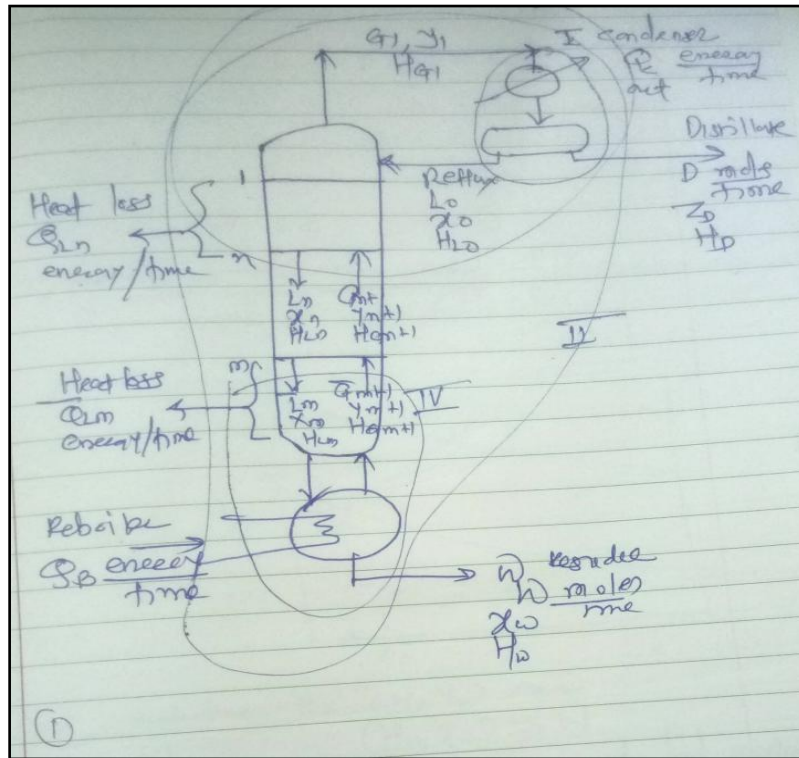 G1, y1
HG1
I condenser
Qc energy
out time
Distillate
D mols
time
ZD
HD
Reflux
L0
x0
HL0
1
n
Heat loss
QLn
energy/time
Ln
xn
HLn
Gn+1
yn+1
HGn+1
II
m
Heat loss
QLm
energy/time
Lm
xm
HLm
Gm+1
ym+1
HGm+1
IV
Reboiler
QB energy
time
W Residue
W moles
time
xw
Hw
1